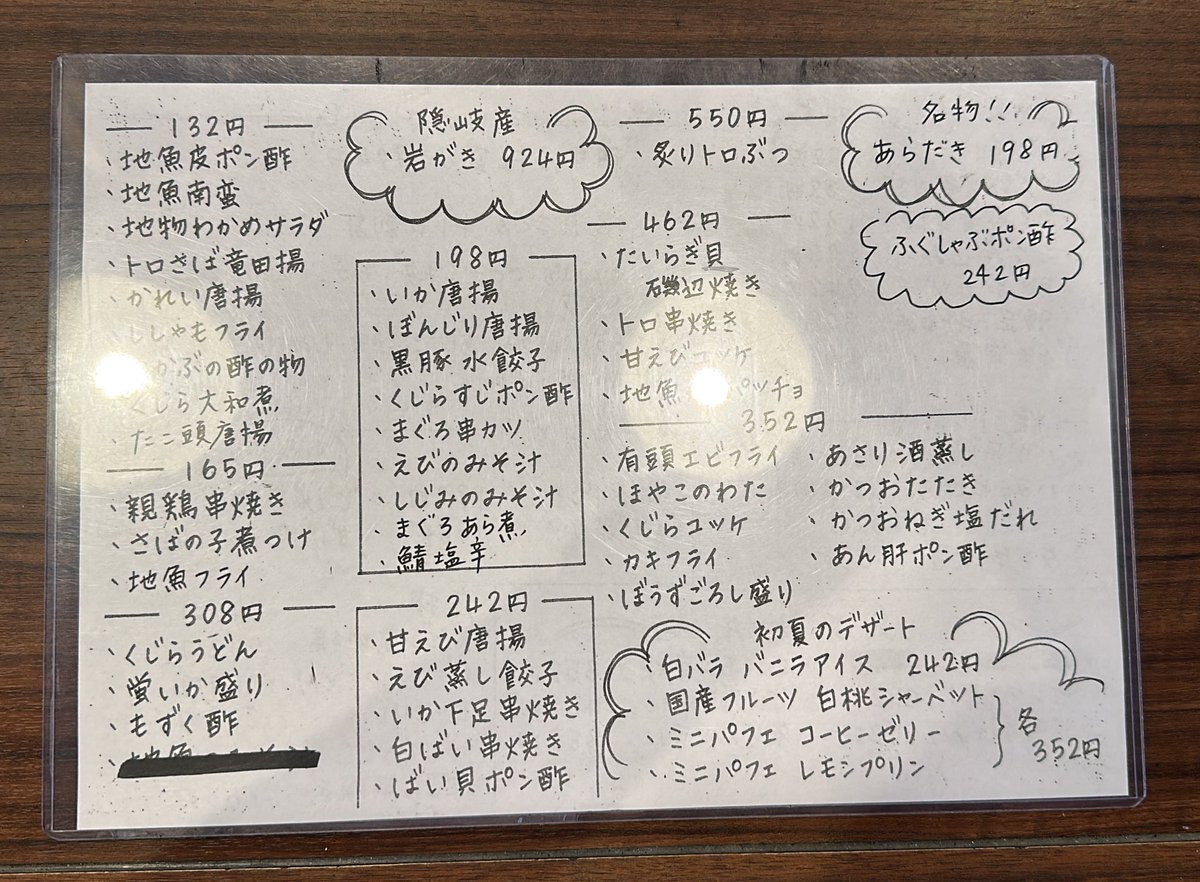 132円
・地魚皮ポン酢
・地魚南蛮
・地物わかめサラダ
・トロさば竜田揚
・かれい唐揚
・ししゃもフライ
かぶの酢の物
・くじら大和煮
・たこ頭唐揚
165円
・親鶏串焼き
・さばの子煮つけ
・地魚フライ
308円
・くじらうどん
・蛍いか盛り
・もずく酢
隠岐産
・岩がき 924円
198円
・いか唐揚
・ぼんじり唐揚
・黒豚水餃子
・くじらすじポン酢
・まぐろ串カツ
・えびのみそ汁
・しじみのみそ汁
・まぐろあら煮
・鯖塩辛
242円
・甘えび唐揚
・えび蒸し餃子
・いか下足串焼き
・白ばい串焼き
・ばい貝ポン酢
550円
・炙りトロぶつ
462円
・たいらぎ貝
磯辺焼き
・トロ串焼き
・甘えびユッケ
・地魚 パッチョ
352円
・有頭エビフライ
・ほやこのわた
・くじらユッケ
・カキフライ
・ぼうずごろし盛り
・あさり酒蒸し
・かつおたたき
・かつおねぎ塩だれ
・あん肝ポン酢
名物!!
あらだき 198円
ふぐしゃぶポン酢
242円
初夏のデザート
・白バラ バニラアイス 242円
・国産フルーツ 白桃シャーベット
・ミニパフェ コーヒーゼリー
・ミニパフェ レモンプリン
各
352円